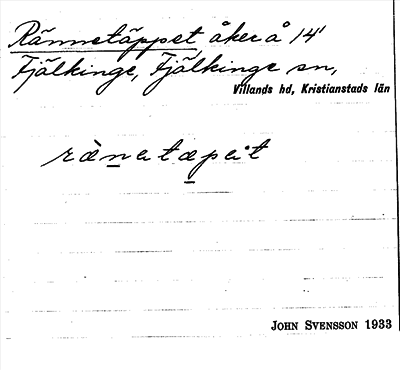 Rännetäppet åker å 14¹
Fjälkinge, Fjälkinge sn,
Villands hd, Kristianstads län
JOHN SVENSSON 1933